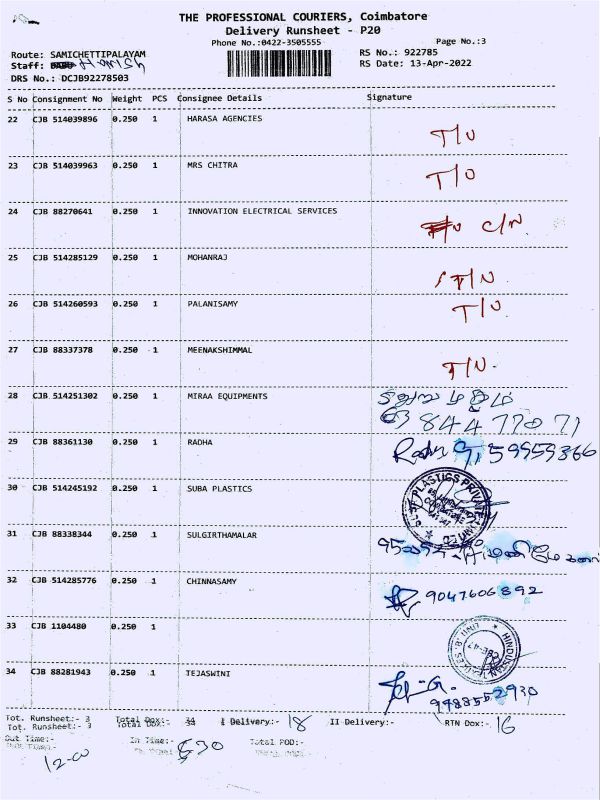 THE PROFESSIONAL COURIERS, Coimbatore
Delivery Runsheet - P20
Phone No.:0422-3505555
Page No.:3
Route: SAMICHETTIPALAYAM
RS No.: 922785
Staff: Harish
RS Date: 13-Apr-2022
DRS No.: DCJB92278503
S No Consignment No Weight PCS Consignee Details Signature
22 CJB 514039896 0.250 1 HARASA AGENCIES
T/U
23 CJB 514039963 0.250 1 MRS CHITRA
T/U
24 CJB 88270641 0.250 1 INNOVATION ELECTRICAL SERVICES
C/N.
25 CJB 514285129 0.250 1 MOHANRAJ
T/N
26 CJB 514260593 0.250 1 PALANISAMY
T/U
27 CJB 88337378 0.250 1 MEENAKSHIMMAL
T/N.
28 CJB 514251302 0.250 1 MIRAA EQUIPMENTS
29 CJB 88361130 0.250 1 RADHA
Radha
30 CJB 514245192 0.250 1 SUBA PLASTICS
31 CJB 88338344 0.250 1 SULGIRTHAMALAR
32 CJB 514285776 0.250 1 CHINNASAMY
9047606892
33 CJB 1104480 0.250 1
34 CJB 88281943 0.250 1 TEJASWINI
9988552930
Tot. Runsheet:- 3 Total Dox:- 34 I Delivery:- 18 II Delivery:- RTN Dox:- 16
Tot. Runsheet:- 3
Out Time:- In Time:- Total POD:-
12-00 6 30